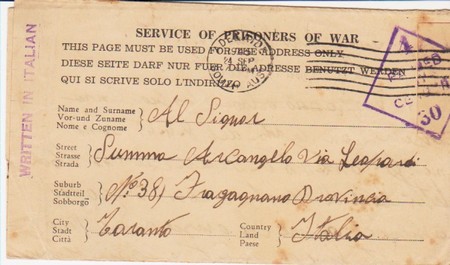 SERVICE OF PRISONERS OF WAR
THIS PAGE MUST BE USED FOR THE ADDRESS ONLY
DIESE SEITE DARF NUR FUER DIE ADRESSE BENUTZT WERDEN
QUI SI SCRIVE SOLO L'INDIRIZZO
WRITTEN IN ITALIAN
30
Name and Surname
Vor-und Zuname
Nome e Cognome
Al Signor
Street
Strasse
Strada
Summa Arcangelo Via Leopardi
Suburb
Stadtteil
Sobborgo
No 38, Fragagnano Provincia
City
Stadt
Città
Taranto
Country
Land
Paese
Italia